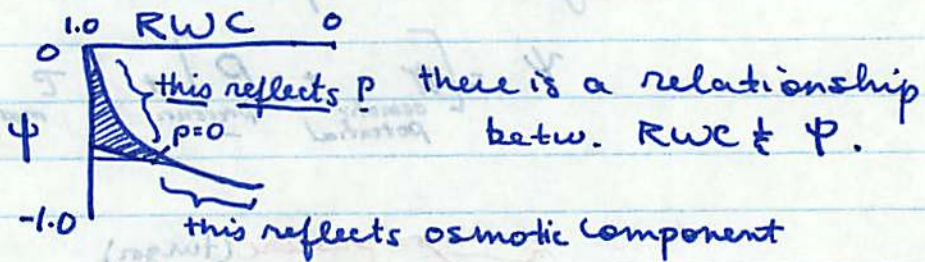 1.0 RWC 0
0
this reflects P there is a relationship
P=0 betw. RWC & Ψ.
Ψ
-1.0
this reflects osmotic component